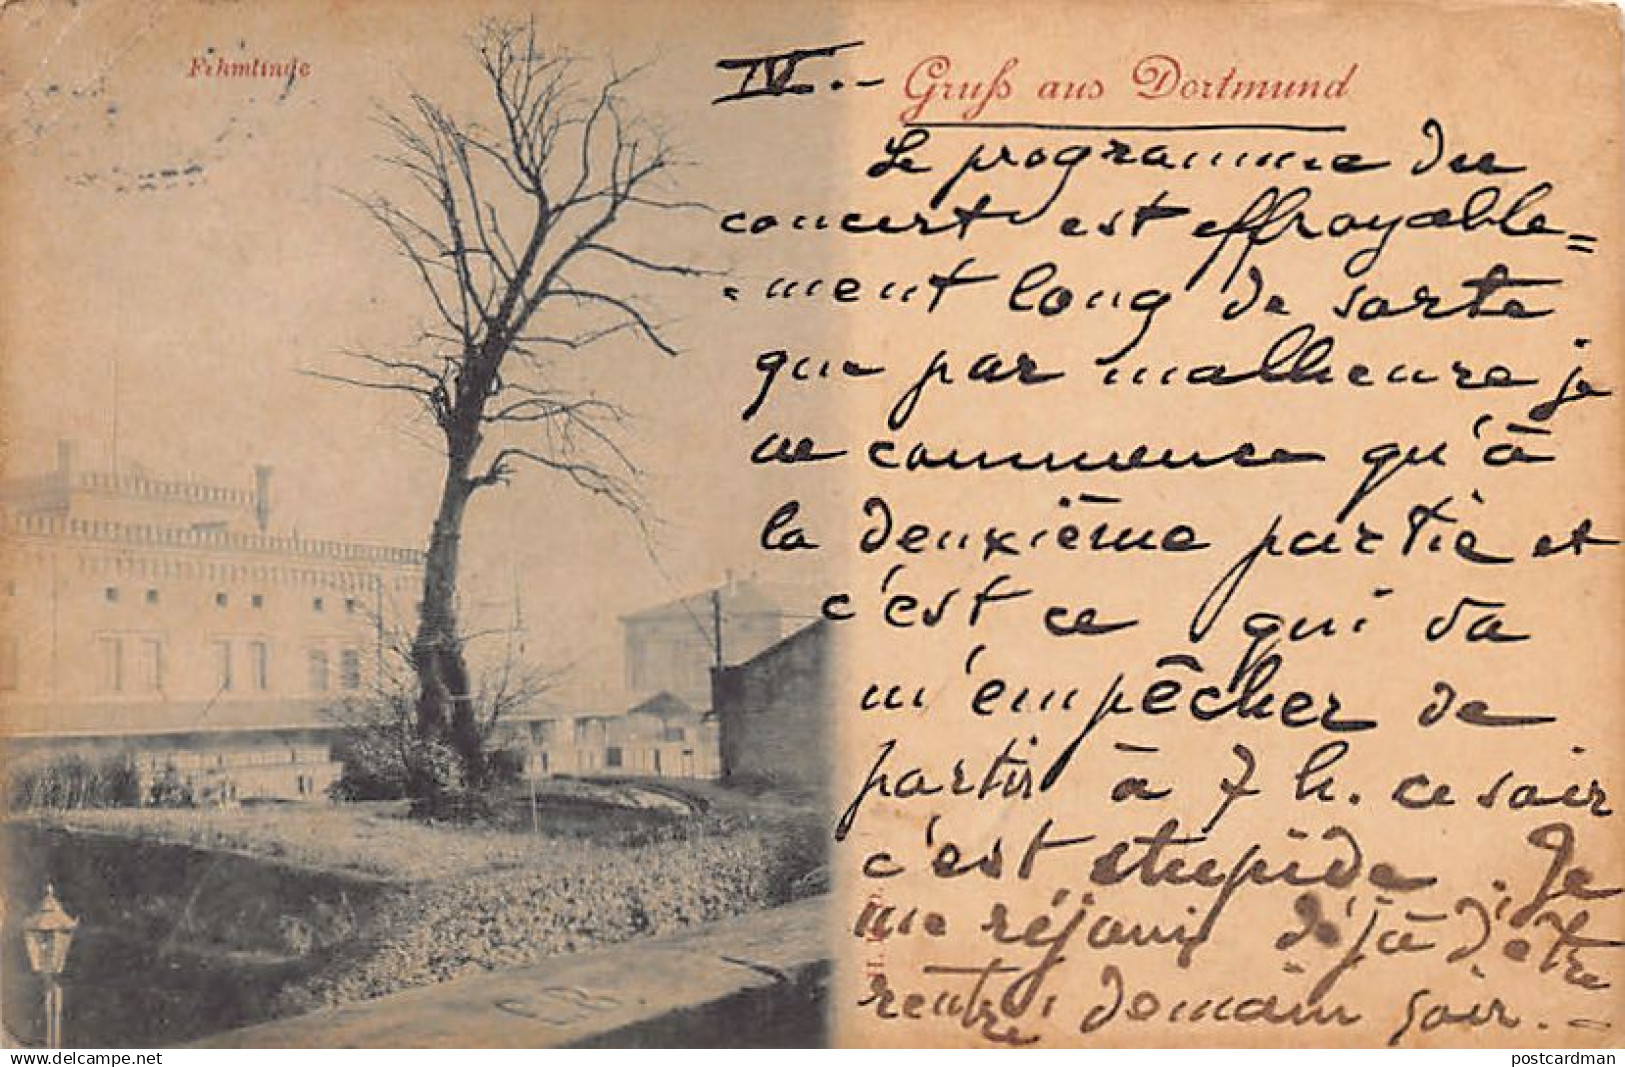 Fehmlinde
IV.-
Gruß aus Dortmund
Le programme du
concert est effroyable=
=ment long de sorte
que par malheure je
ne commence qu'à
la deuxième partie et
c'est ce qui va
m'empêcher de
partir à 7 h. ce soir
c'est stupide. Je
me réjouis déjà d'être
rentré demain soir.-
delcampe.net
postcardman